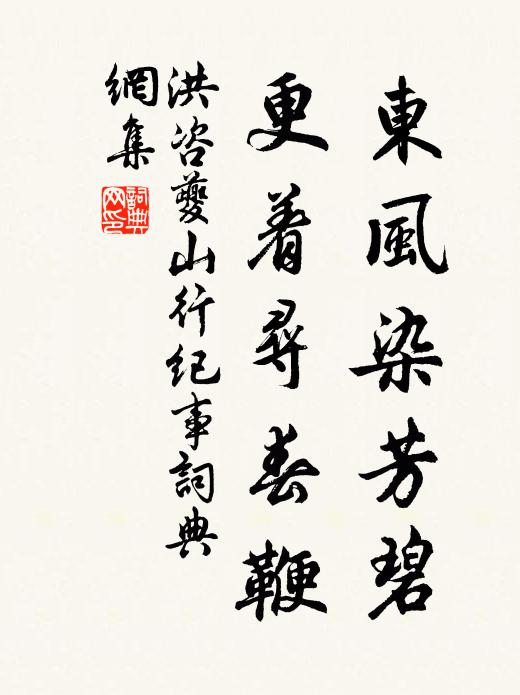 東風染芳碧
更着尋春鞭
洪咨夔山行纪事詞典
網集
詞典
网印